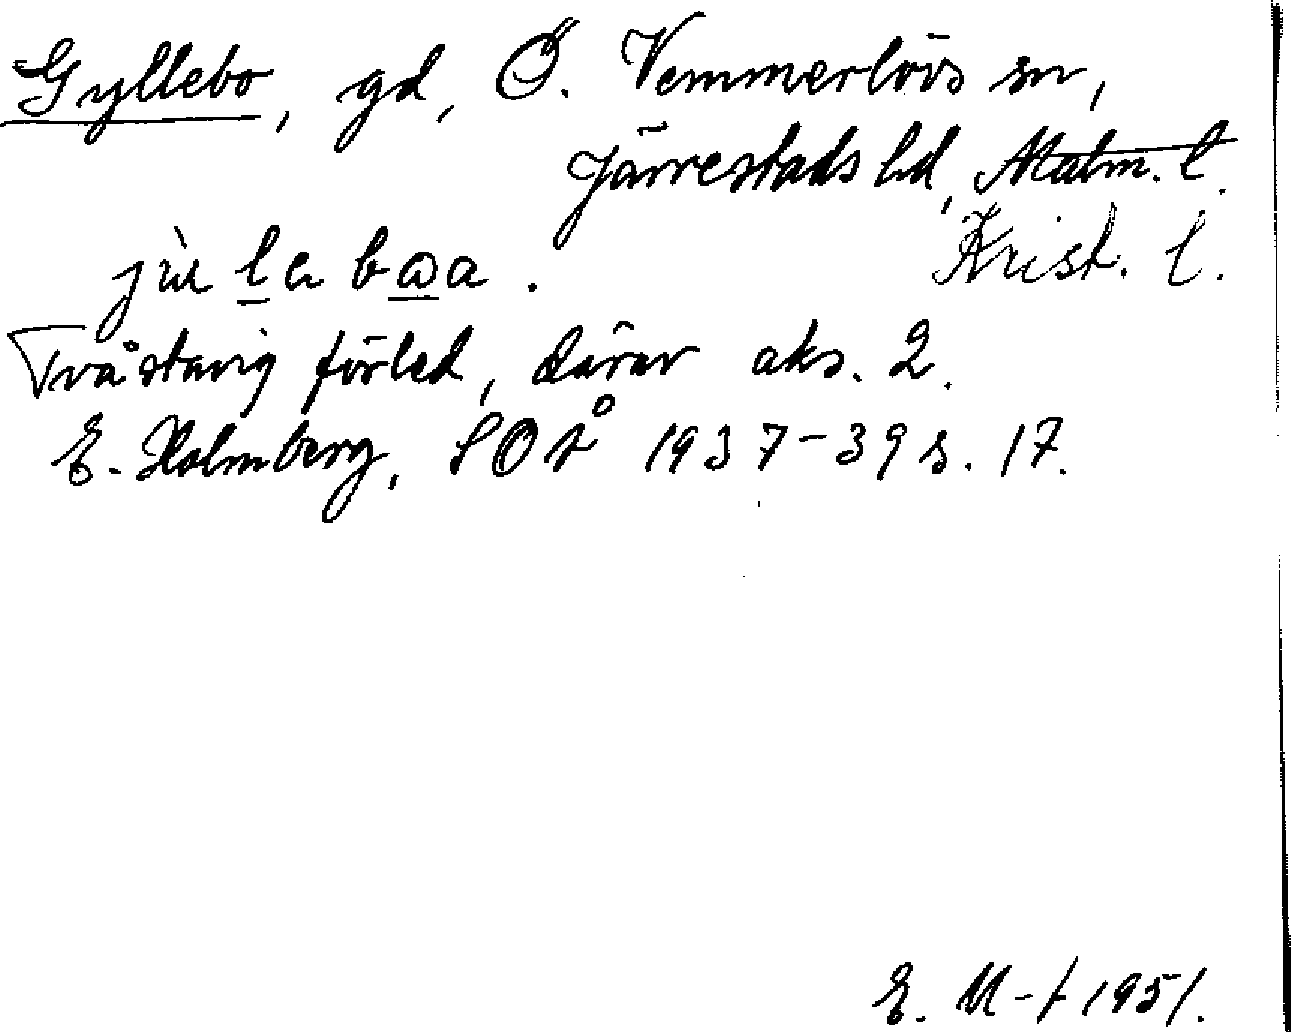 Gyllebo, gd, Ö. Vemmerlövs sn,
Järrestads hd, Malm. l.
Krist. l.
Tvåstavig förled, därav aks. 2.
E. Holmberg, SOÅ 1937-39 s. 17.
E. M-t 1951.